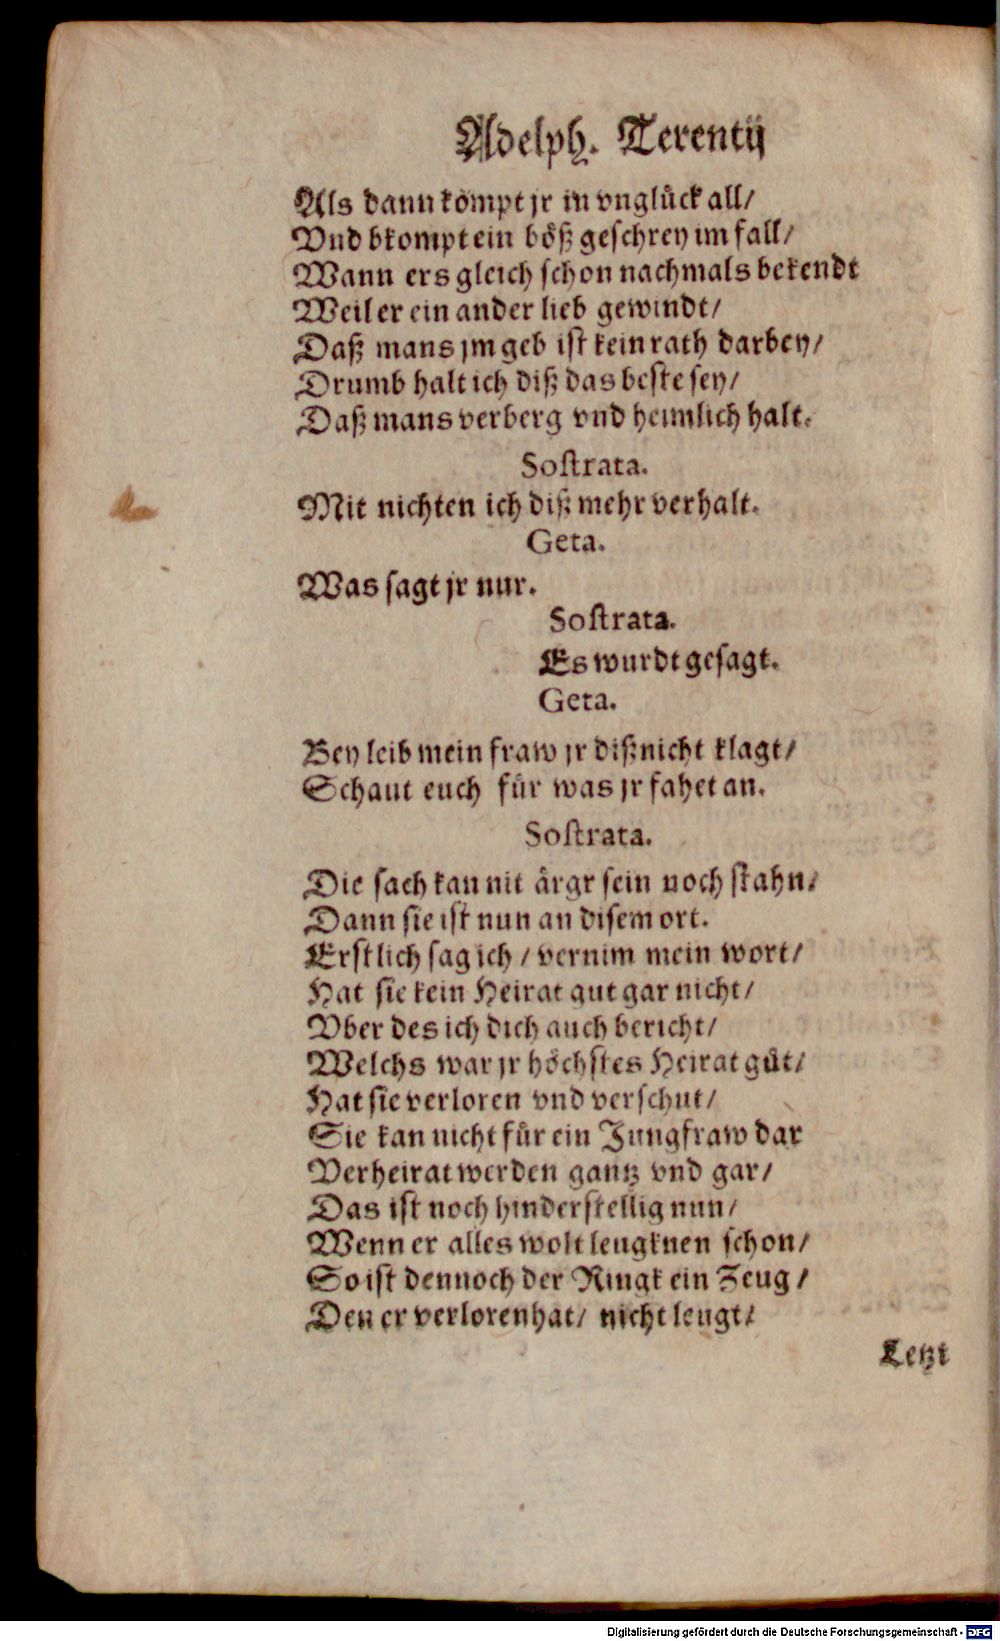 Adelph. Terentij
Als dann kompt jr in vnglück all/
Vnd bkompt ein böß geschrey im fall/
Wann ers gleich schon nachmals bekendt
Weil er ein ander lieb gewindt/
Daß mans jm geb ist kein rath darbey/
Drumb halt ich diß das beste sey/
Daß mans verberg vnd heimlich halt.
Sostrata.
Mit nichten ich diß mehr verhalt.
Geta.
Was sagt jr nur.
Sostrata.
Es wurdt gesagt.
Geta.
Bey leib mein fraw jr diß nicht klagt/
Schaut euch für was jr fahet an.
Sostrata.
Die sach kan nit ärgr sein noch stahn/
Dann sie ist nun an disem ort.
Erstlich sag ich / vernim mein wort/
Hat sie kein Heirat gut gar nicht/
Vber des ich dich auch bericht/
Welchs war jr höchstes Heirat gůt/
Hat sie verloren vnd verschut/
Sie kan nicht für ein Jungfraw dar
Verheirat werden gantz vnd gar/
Das ist noch hinderstellig nun/
Wenn er alles wolt leugknen schon/
So ist dennoch der Ringk ein Zeug/
Den er verloren hat/ nicht leugt/
Letzt
Digitalisierung gefördert durch die Deutsche Forschungsgemeinschaft - DFG